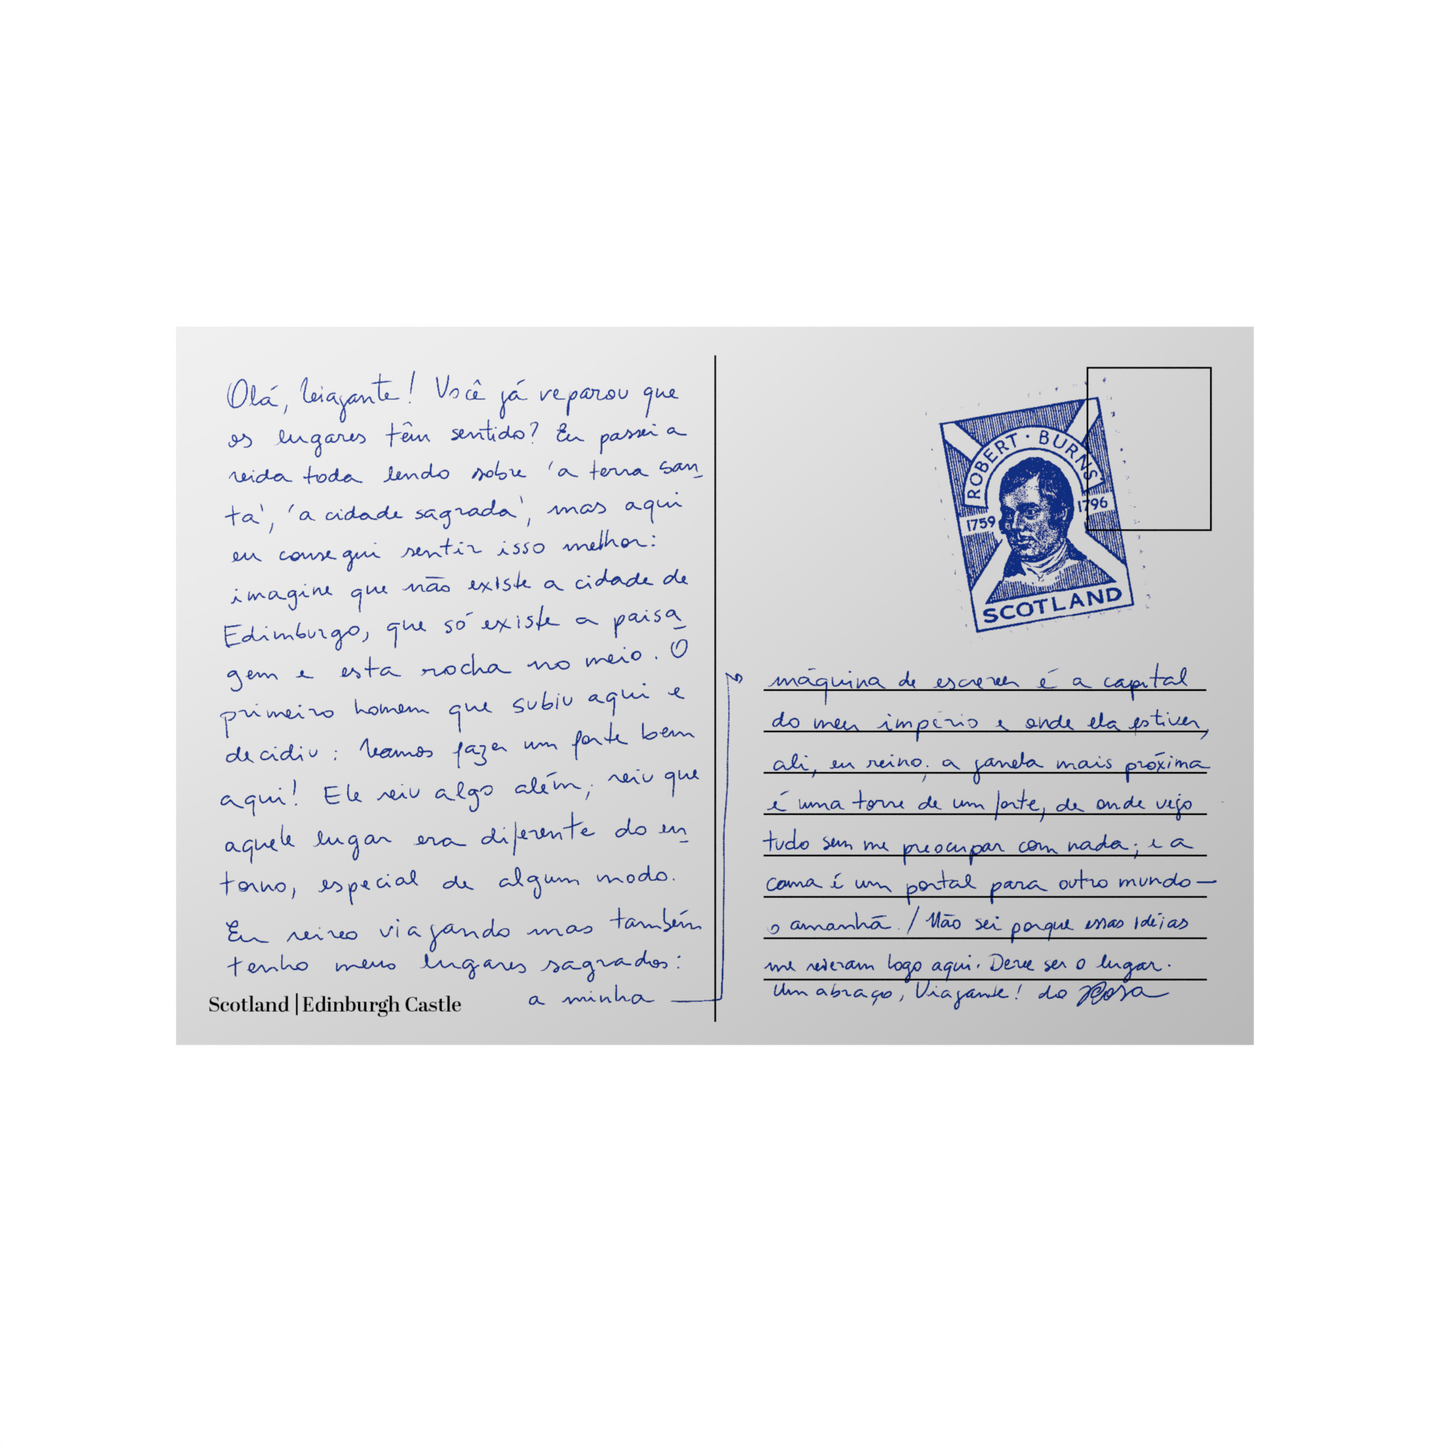 Olá, Viajante! Você já reparou que
os lugares têm sentido? Eu passei a
vida toda lendo sobre 'a terra san-
ta', 'a cidade sagrada', mas aqui
eu consegui sentir isso melhor:
imagine que não existe a cidade de
Edimburgo, que só existe a paisa-
gem e esta rocha no meio. O
primeiro homem que subiu aqui e
decidiu: Vamos fazer um forte bem
aqui! Ele viu algo além, viu que
aquele lugar era diferente do en-
torno, especial de algum modo.
Eu vivo viajando mas também
tenho meus lugares sagrados:
a minha
Scotland | Edinburgh Castle
ROBERT · BURNS
1759 1796
SCOTLAND
máquina de escrever é a capital
do meu império e onde ela estiver,
ali, eu reino; a janela mais próxima
é uma torre de um forte, de onde vejo
tudo sem me preocupar com nada; e a
cama é um portal para outro mundo —
o amanhã. / Não sei porque essas idéias
me vieram logo aqui. Deve ser o lugar.
Um abraço, Viajante! do Rosa